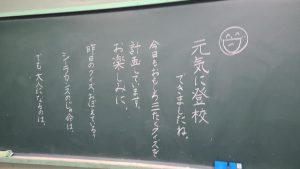 元気に登校
できましたね。
今日もおもしろ三たくクイズを
計画しています。
お楽しみに、
昨日のクイズおぼえている?
シーラカンスのじゅ命は、
でも大人になるのは、